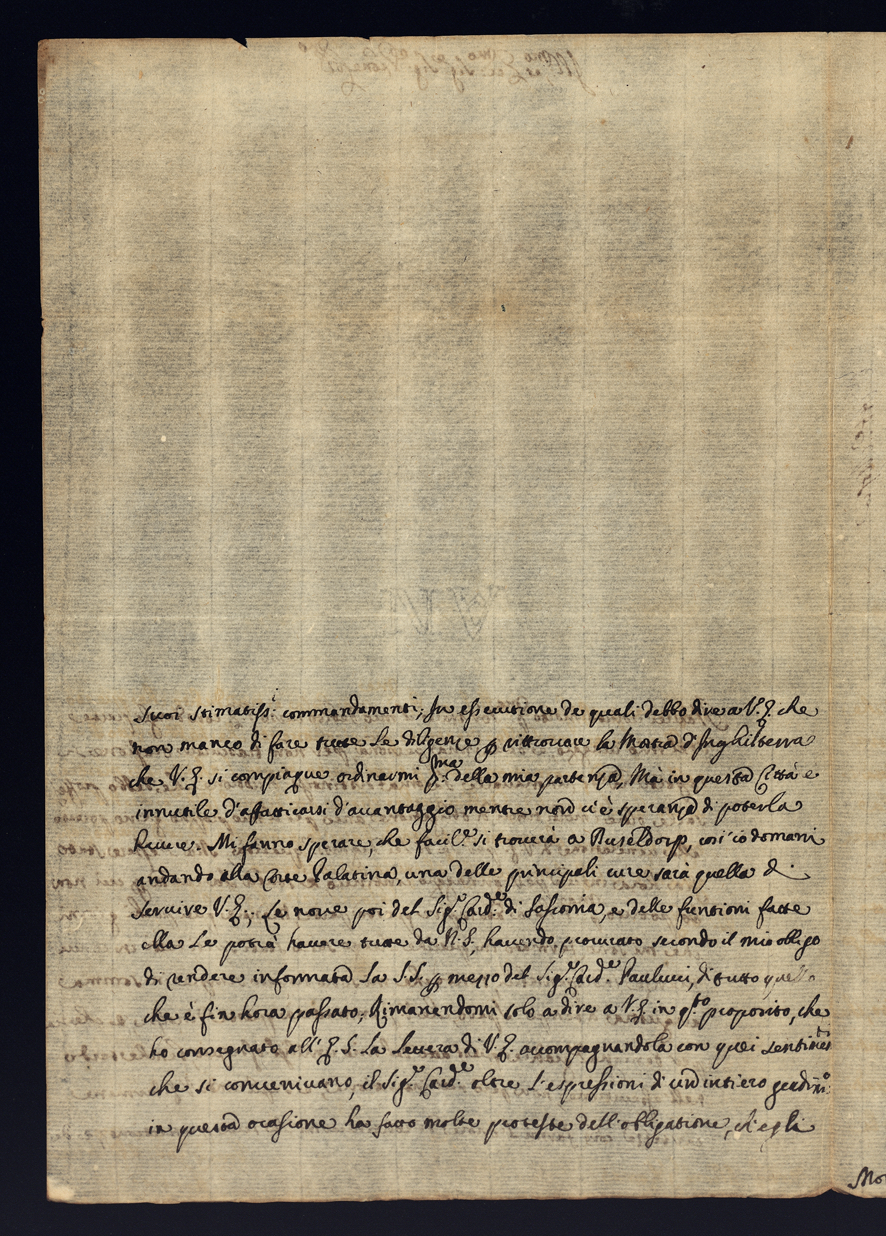 suoi stimatiss:i commandamenti; In essecutione de quali debbo dire a V.E. che
non manco di fare tutte le diligenze per ritrovare la d'Inghilterra
che V.E. si compiaque ordinarmi p.ma della mia partenza, Mà in questa Città è
innutile d'affatticarsi d'avantaggio mentre non v'è speranza di poterla
havere. Mi fanno sperare, che facil.te si troverà a Duseldorp, così io domani
andando alla Corte Palatina, una delle principali cure sarà quella di
servire V.E.; Le nove poi del Sig.r Card.le di Sassonia, e delle funtioni fatte
ella le potrà havere tutte da N.S., havendo procurato secondo il mio obligo
di rendere informata la S.S. per mezzo del Sig.r Card.le Paulucci, di tutto quello
che è fin hora passato; Rimanendomi solo a dire a V.E. in q.sto proposito, che
ho consegnato all'E.S. la lettera di V.E. accompagnandola con quei sentim.ti
che si convenivano, il Sig.r Card.le oltre l'espressioni di un intiero
in questa ocasione ha fatto molte proteste dell'obligatione, ch'egli